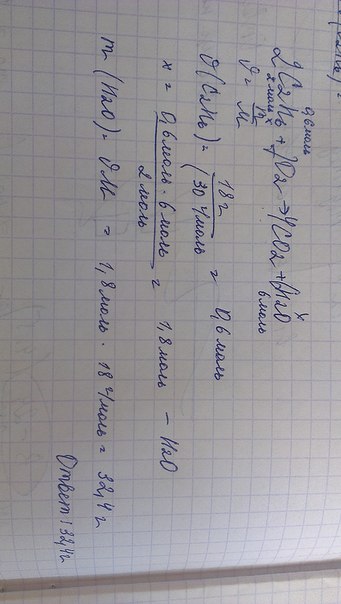 0,6 моль x
2C2H6 + 7O2 => 4CO2 + 6H2O
2 моль 6 моль
ν = m/M
ν(C2H6) = 18 г / (30 г/моль) = 0,6 моль
x = 0,6 моль · 6 моль / 2 моль = 1,8 моль – H2O
m (H2O) = νM = 1,8 моль · 18 г/моль = 32,4 г
Ответ: 32,4 г